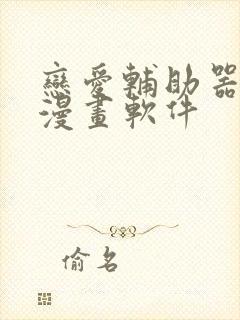 戀愛輔助器
漫畫軟件
偷名